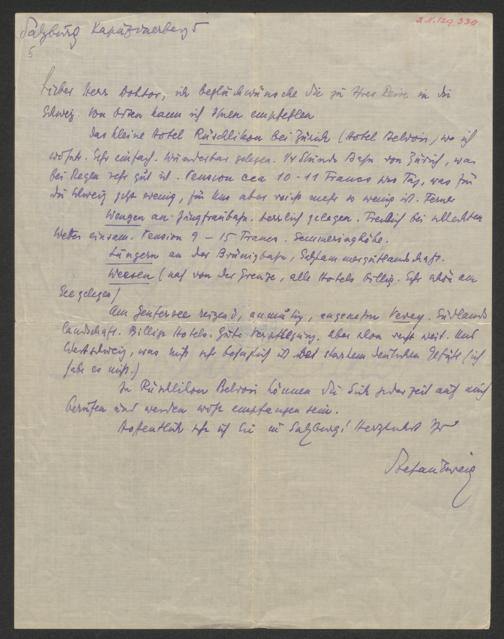 Salzburg Kapuzinerberg 5
5
Lieber Herr Doktor, ich beglückwünsche Sie zu Ihrer Reise in die
Schweiz. Von Orten kann ich Ihnen empfehlen
Das kleine Hotel Rüschlikon bei Zürich (Hotel Belvoir, wo ich
wohnte. Sehr einfach. Wunderbar gelegen. 1/4 Stunde Bahn von Zürich, was
bei Regen sehr gut ist. Pension cca 10 - 11 Francs pro Tag, was für
die Schweiz jetzt wenig, für uns aber nicht mehr so wenig ist. Ferner
Wengen an Jungfraubahn. Herrlich gelegen. Freilich bei schlechtem
Wetter einsam. Pension 9 - 15 Francs. Semmeringhöhe.
Lungern an der Brünigbahn, Salzkammergutlandschaft.
Weesen (nah von der Grenze, alle Hotels billig. Sehr schön am
See gelegen)
Am Genfersee reizend, anmutig, angenehm Vevey. Südlands
landschaft. Billige Hotels. Gute Verpflegung. Aber schon recht weit. Und
Westschweiz, was nicht sehr behaglich ist bei starkem deutschen Gefühl (ich
habe es nicht.)
In Rüschlikon Belvoir können Sie Sich jederzeit auf mich
berufen und werden wohl empfangen sein.
Hoffentlich sehe ich Sie in Salzburg! Herzlichst Ihr
Stefan Zweig